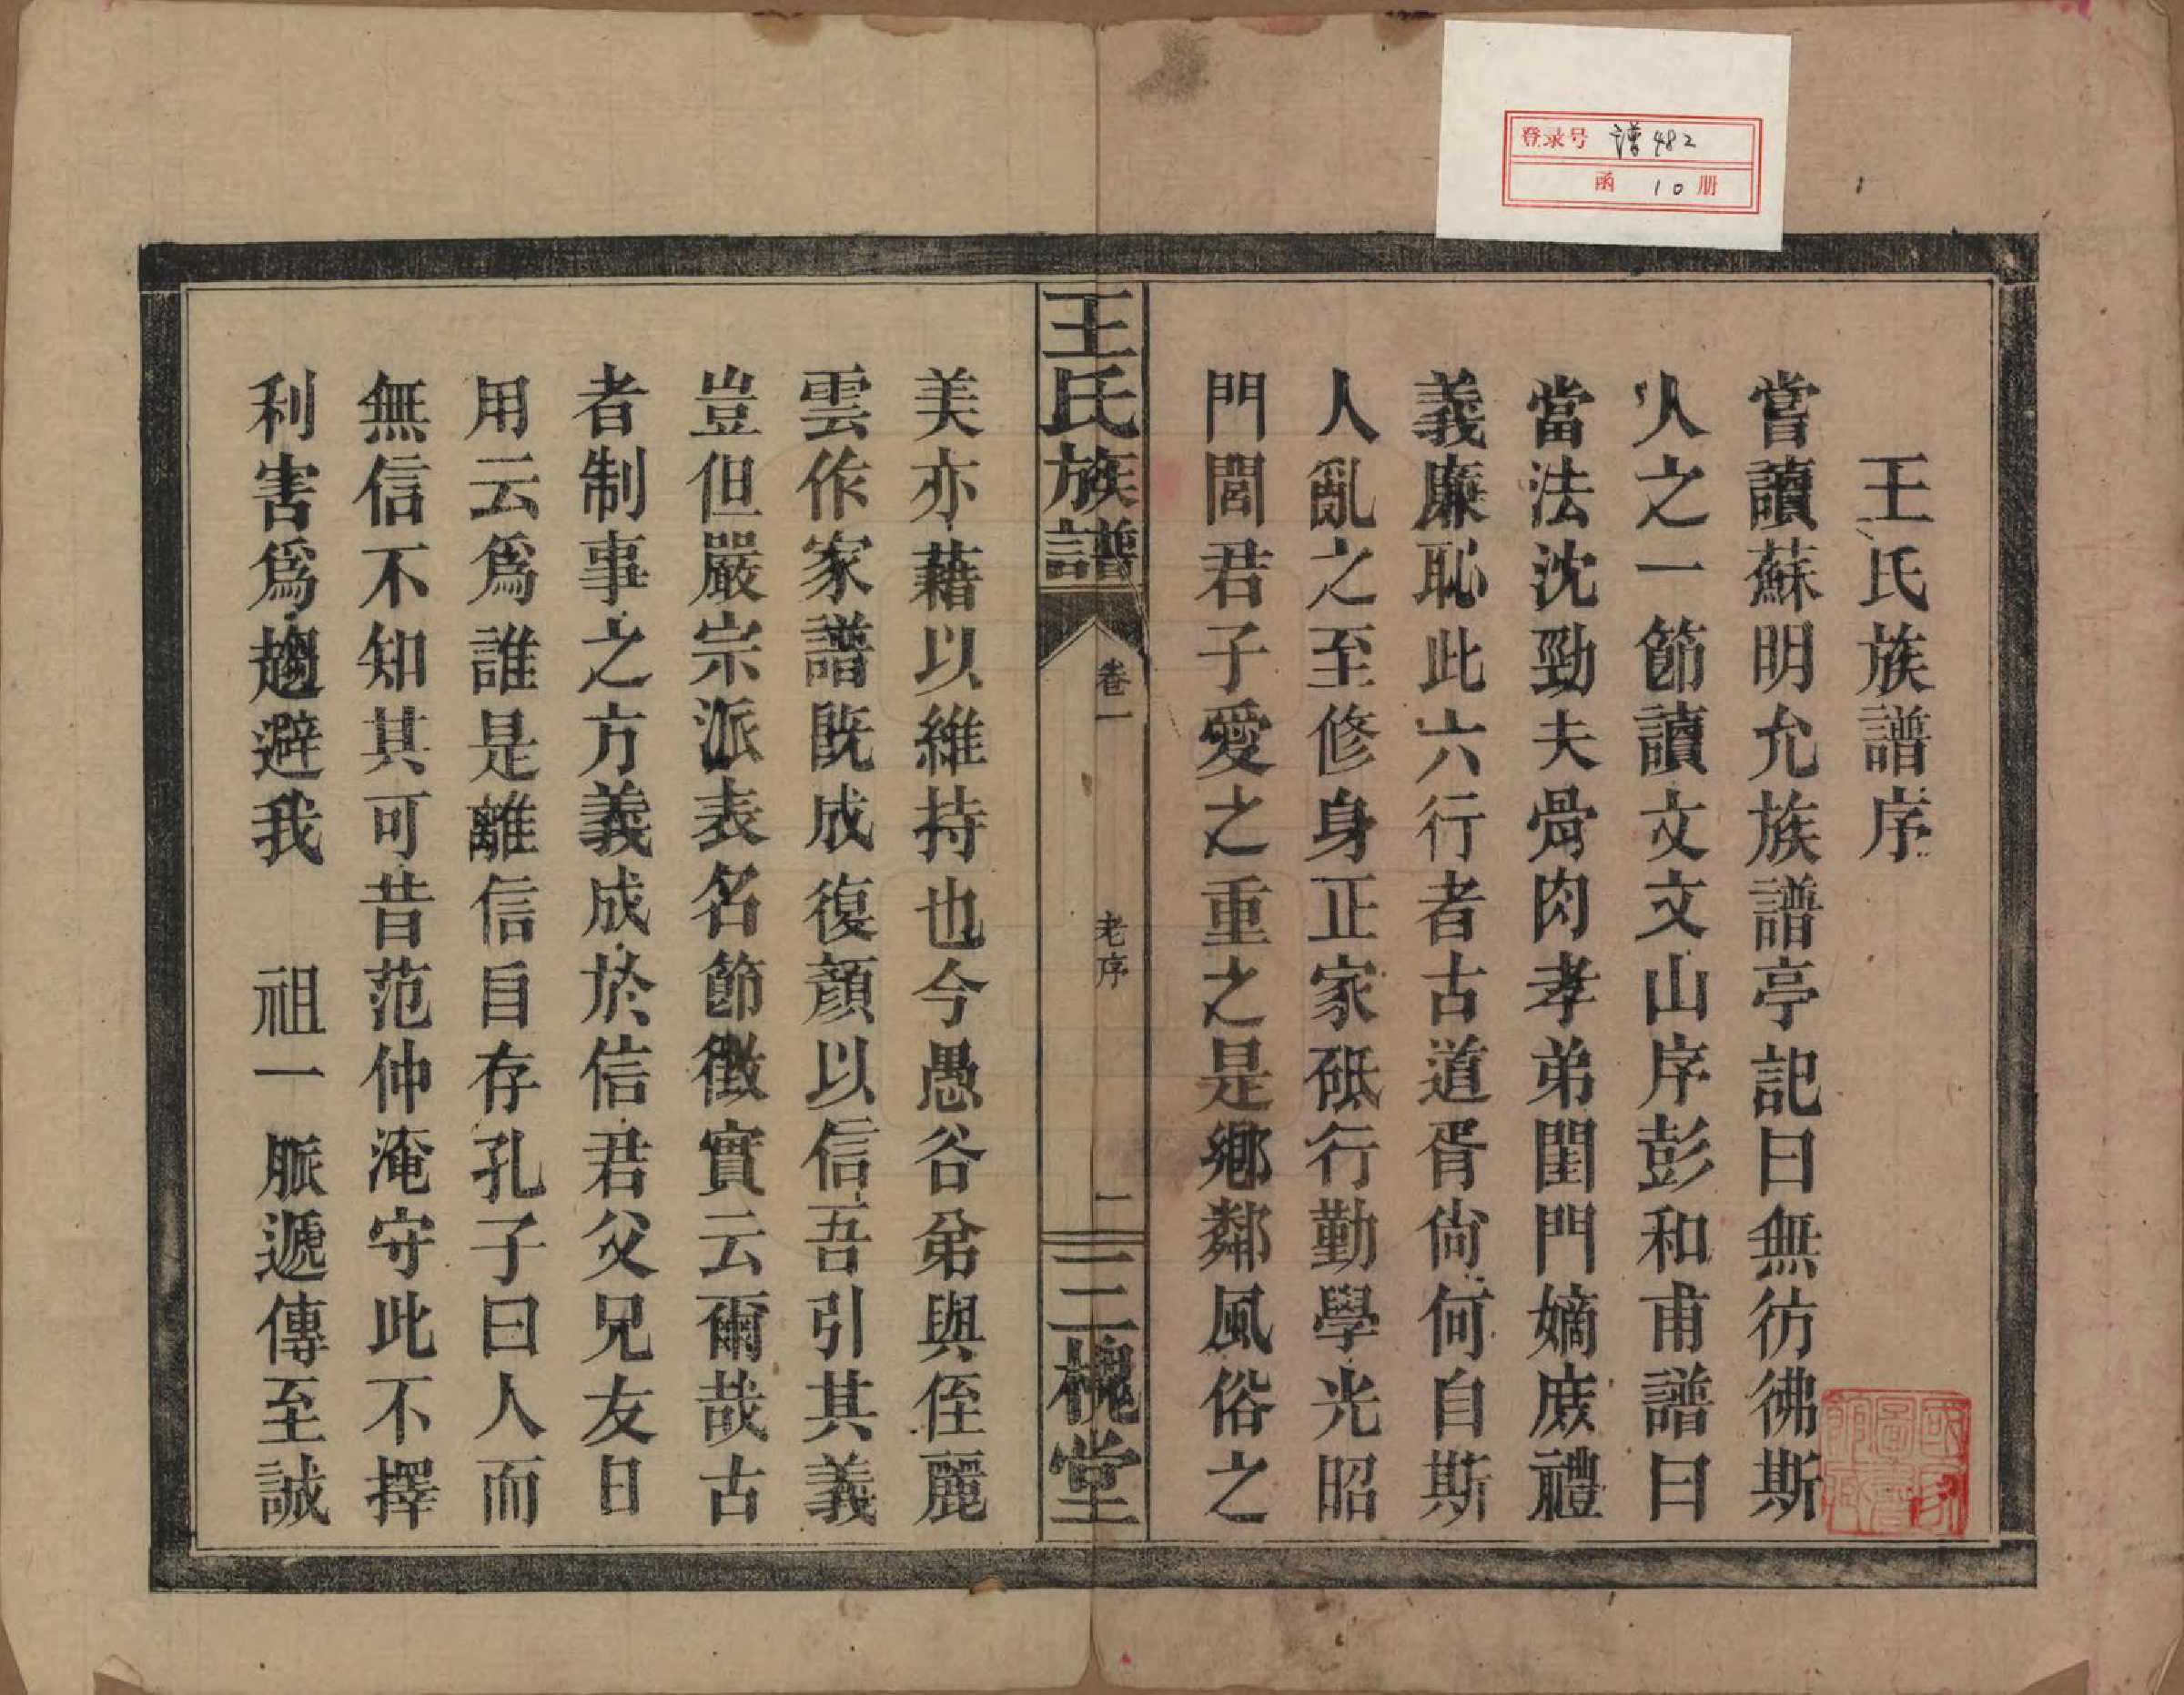 登录号 谱482
函 10 册
王氏族譜序
嘗讀蘇明允族譜亭記曰無彷彿斯
人之一節讀文文山序彭和甫譜曰
當法沈勁夫骨肉孝弟閨門嫡庻禮
義廉恥此六行者古道胥尙何自斯
人亂之至修身正家砥行勤學光昭
門閭君子愛之重之是鄉鄰風俗之
王氏族譜
卷一
老序
一
三槐堂
美亦藉以維持也今愚谷弟與侄麗
雲作家譜既成復顏以信吾引其義
豈但嚴宗派表名節徵實云爾哉古
者制事之方義成於信君父兄友日
用云爲誰是離信自存孔子曰人而
無信不知其可昔范仲淹守此不擇
利害爲趨避我　祖一脈遞傳至誠
國家圖書館藏